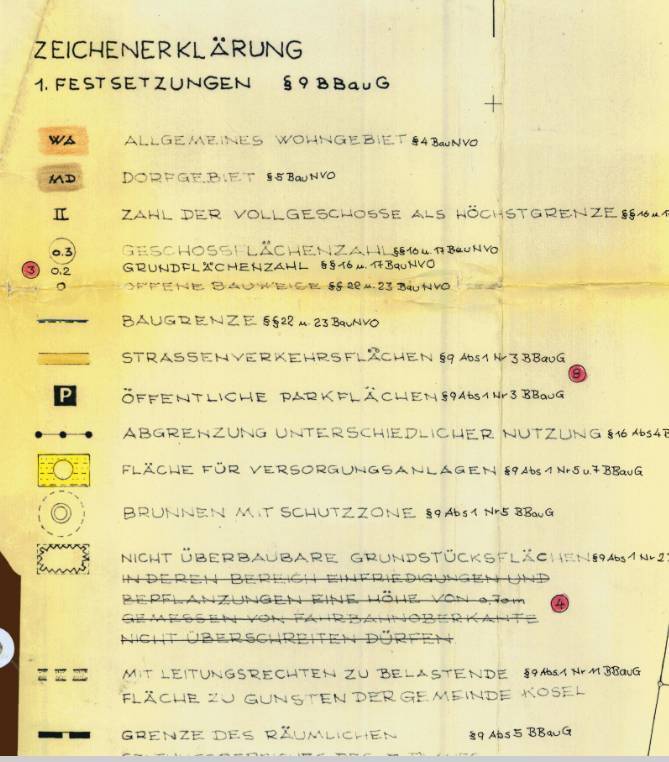 ZEICHENERKLÄRUNG
1. FESTSETZUNGEN § 9 BBauG
WA ALLGEMEINES WOHNGEBIET § 4 BauNVO
MD DORFGEBIET § 5 BauNVO
II ZAHL DER VOLLGESCHOSSE ALS HÖCHSTGRENZE §§ 16 u. 1
0.3 GESCHOSSFLÄCHENZAHL §§ 16 u. 17 BauNVO
3 0.2 GRUNDFLÄCHENZAHL §§ 16 u. 17 BauNVO
o OFFENE BAUWEISE §§ 22 u. 23 BauNVO
BAUGRENZE §§ 22 u. 23 BauNVO
STRASSENVERKEHRSFLÄCHEN § 9 Abs 1 Nr 3 BBauG
8
P ÖFFENTLICHE PARKFLÄCHEN § 9 Abs 1 Nr 3 BBauG
ABGRENZUNG UNTERSCHIEDLICHER NUTZUNG § 16 Abs 4 B
FLÄCHE FÜR VERSORGUNGSANLAGEN § 9 Abs 1 Nr 5 u. 7 BBauG
BRUNNEN MIT SCHUTZZONE § 9 Abs 1 Nr 5 BBauG
NICHT ÜBERBAUBARE GRUNDSTÜCKSFLÄCHEN § 9 Abs 1 Nr 2
IN DEREN BEREICH EINFRIEDIGUNGEN UND
BEPFLANZUNGEN EINE HÖHE VON 0,70m 4
GEMESSEN VON FAHRBAHNOBERKANTE
NICHT ÜBERSCHREITEN DÜRFEN
MIT LEITUNGSRECHTEN ZU BELASTENDE § 9 Abs. 1 Nr 11 BBauG
FLÄCHE ZU GUNSTEN DER GEMEINDE KOSEL
GRENZE DES RÄUMLICHEN § 9 Abs 5 BBauG